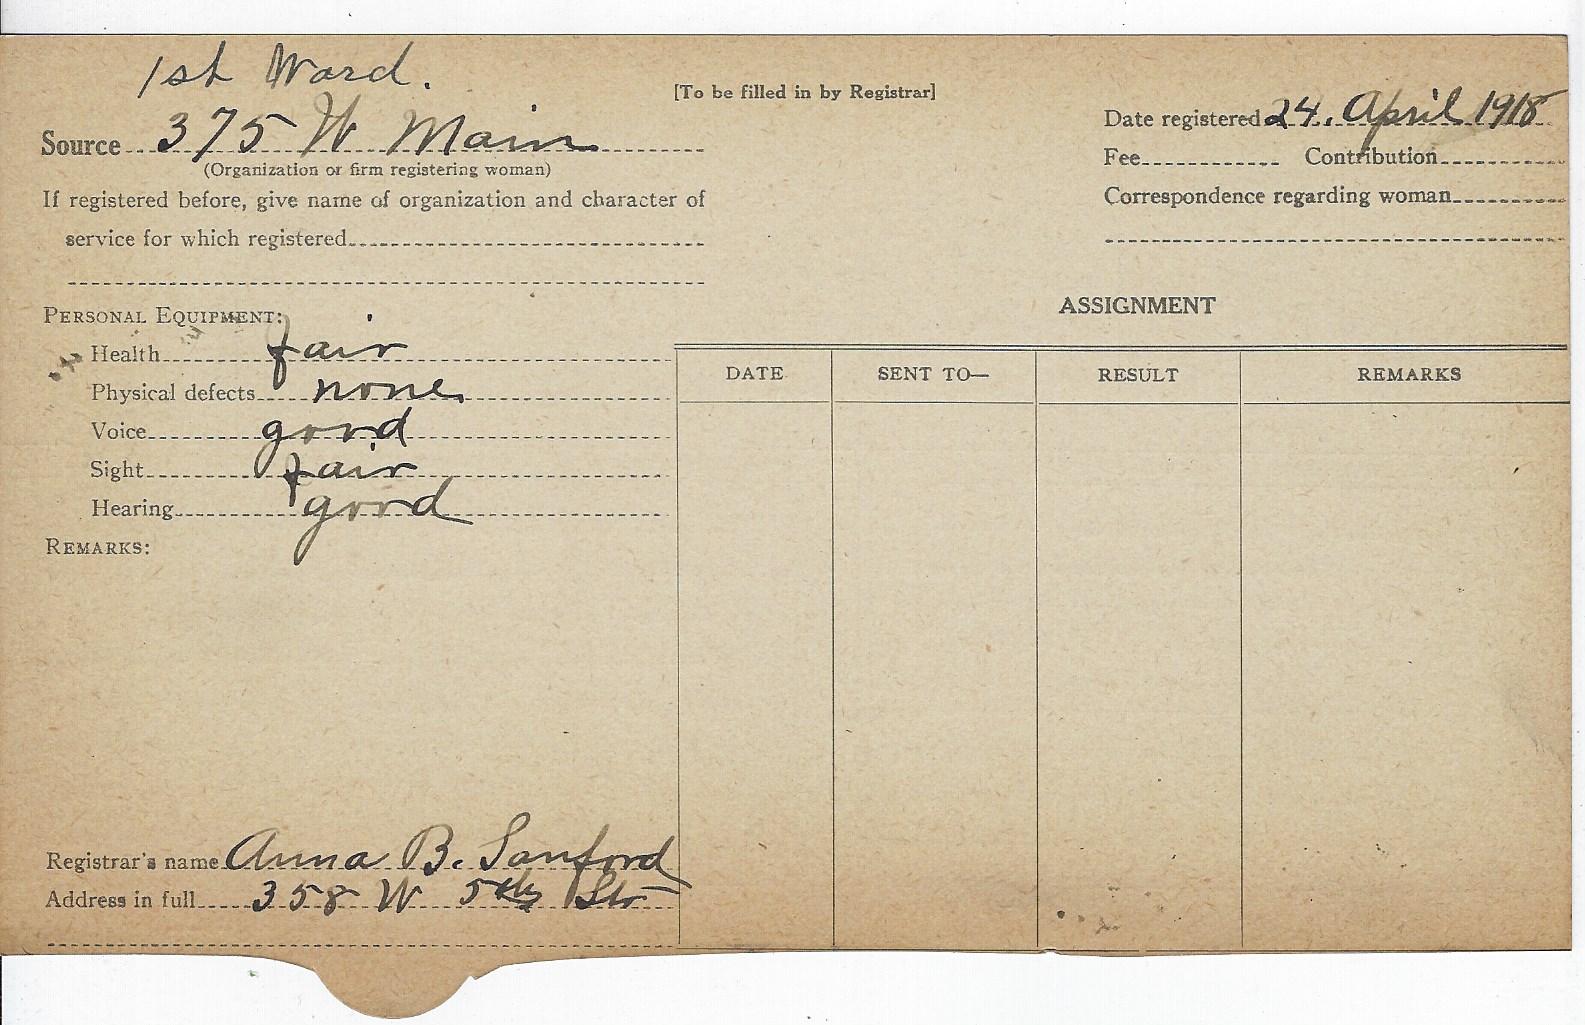 1st Ward.
[To be filled in by Registrar]
Source 375 W Main
(Organization or firm registering woman)
Date registered 24. April 1918
Fee Contribution
If registered before, give name of organization and character of
service for which registered
Correspondence regarding woman
PERSONAL EQUIPMENT:
Health fair
Physical defects none
Voice good
Sight fair
Hearing good
REMARKS:
ASSIGNMENT
DATE SENT TO— RESULT REMARKS
Registrar's name Anna B. Sanford
Address in full 358 W 5th St